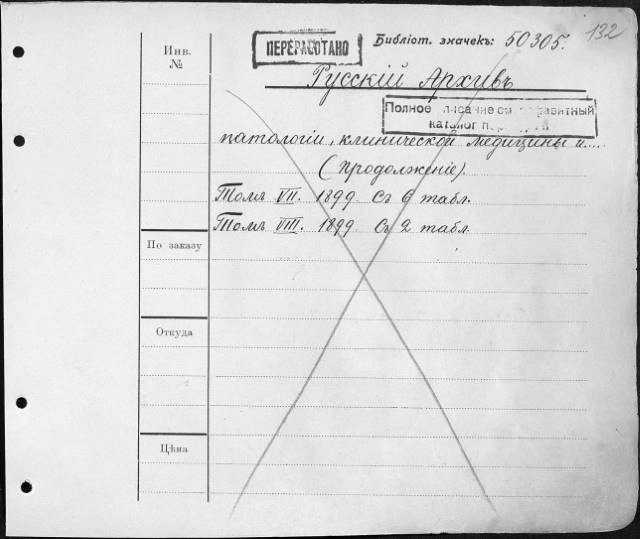 132
Инв. №
ПЕРЕРАБОТАНО
Библіот. значекъ: 50305.
Русскій Архивъ
Полное
каталог
патологіи, клинической медицины и....
(продолженіе).
Томъ VII. 1899. Съ 6 табл.
Томъ VIII. 1899. Съ 2 табл.
По заказу
Откуда
Цѣна